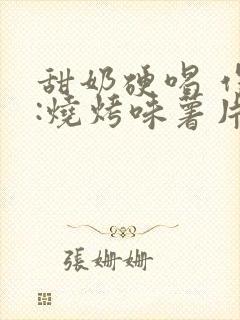 甜奶硬唱
:燒烤味薯片
張姍姍